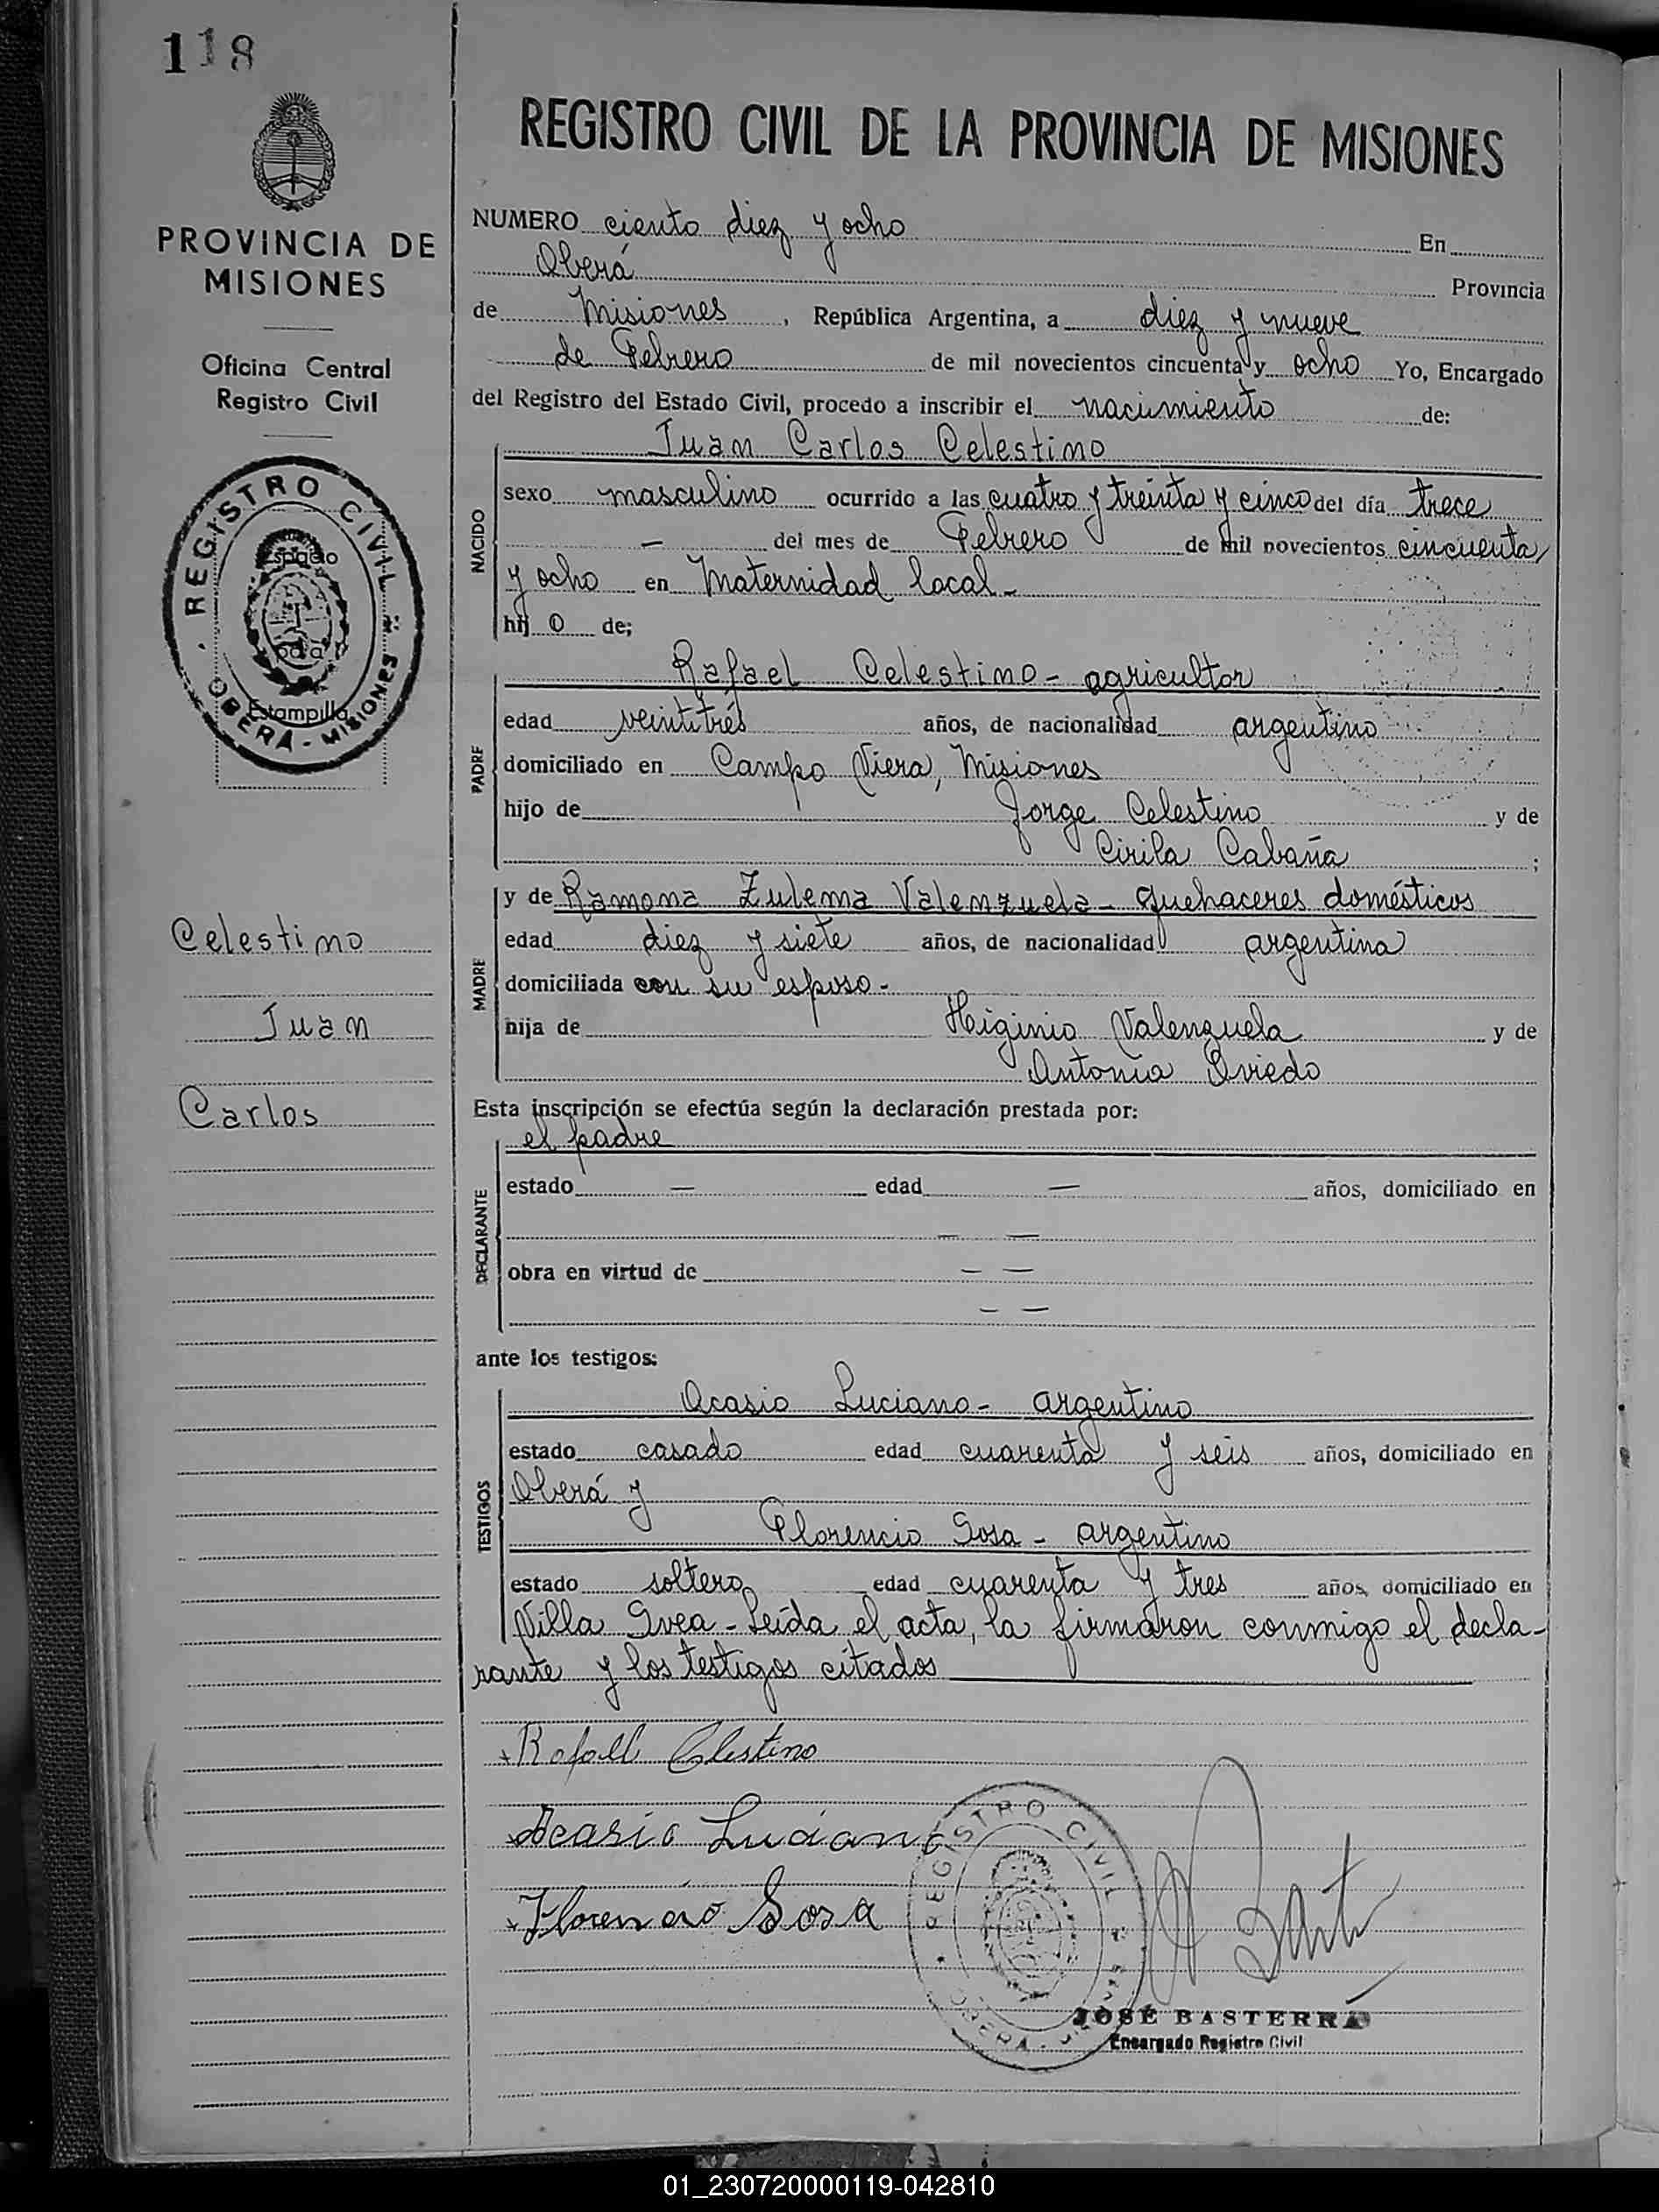 118
PROVINCIA DE
MISIONES
Oficina Central
Registro Civil
REGISTRO CIVIL
OBERA - MISIONES
Espacio
para
Estampilla
Celestino
Juan
Carlos
REGISTRO CIVIL DE LA PROVINCIA DE MISIONES
NUMERO ciento diez y ocho En
Oberá Provincia
de Misiones, República Argentina, a diez y nueve
de Febrero de mil novecientos cincuenta y ocho Yo, Encargado
del Registro del Estado Civil, procedo a inscribir el nacimiento de:
NACIDO
Juan Carlos Celestino
sexo masculino ocurrido a las cuatro y treinta y cinco del día trece
— del mes de Febrero de mil novecientos cincuenta
y ocho en Maternidad local -
hij o de;
PADRE
Rafael Celestino - agricultor
edad veintitrés años, de nacionalidad argentino
domiciliado en Campo Viera, Misiones
hijo de Jorge Celestino y de
Cirila Cabaña ;
MADRE
y de Ramona Zulema Valenzuela - quehaceres domésticos
edad diez y siete años, de nacionalidad argentina
domiciliada con su esposo -
hija de Higinio Valenzuela y de
Antonia Oviedo
Esta inscripción se efectúa según la declaración prestada por:
DECLARANTE
el padre
estado — edad — años, domiciliado en
— —
obra en virtud de — —
— —
ante los testigos:
TESTIGOS
Acasio Luciano - argentino
estado casado edad cuarenta y seis años, domiciliado en
Oberá y
Florencio Sosa - argentino
estado soltero edad cuarenta y tres años, domiciliado en
Villa Svea - Leída el acta, la firmaron conmigo el decla-
rante y los testigos citados
Rafaell Celestino
Acasio Luciano
Florencio Sosa
REGISTRO CIVIL
OBERA - MISIONES
JOSÉ BASTERRA
Encargado Registro Civil
01_230720000119-042810